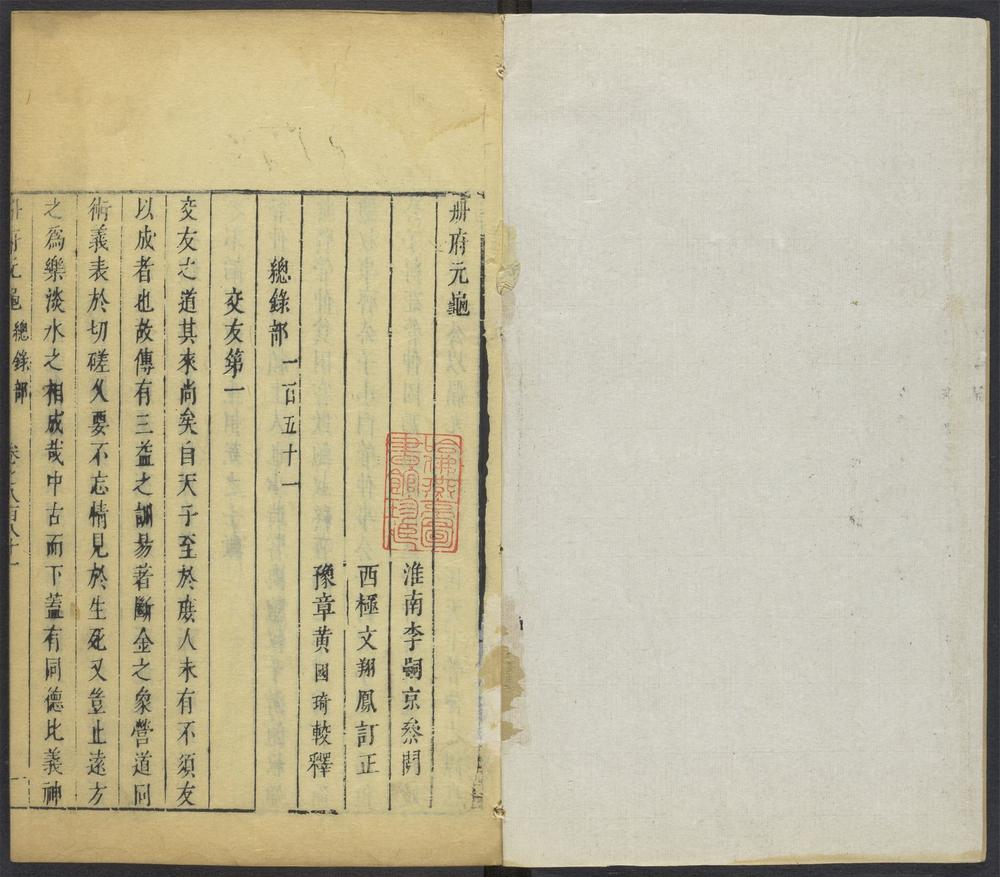 册府元龜
淮南李嗣京叅閱
西極文翔鳳訂正
豫章黄國琦較釋
總錄部 一百五十一
交友第一
交友之道其來尚矣自天子至於庻人未有不須友
以成者也故傳有三益之訓易著斷金之象營道同
術義表於切磋久要不忘情見於生死又豈止遠方
之爲樂淡水之相成哉中古而下蓋有同德比義神
册府元龜 總錄部 卷之八百八十一 一